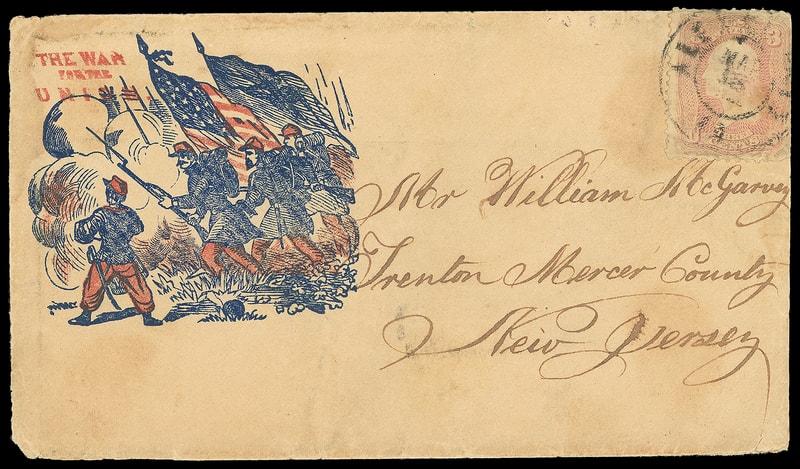 THE WAR
FOR THE
UNION
3
Mr William McGarvey
Trenton Mercer County
New Jersey